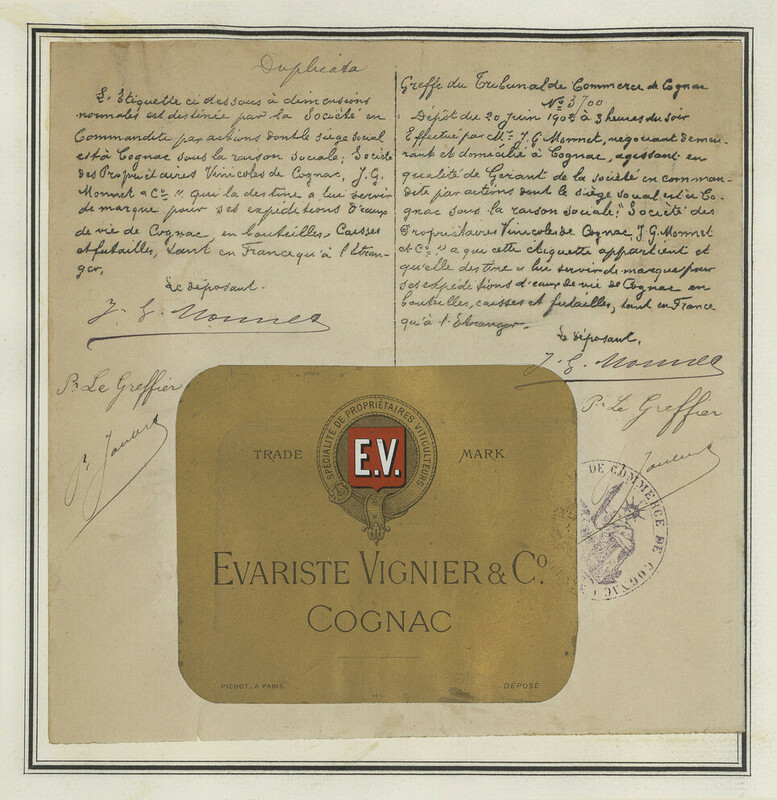 Duplicata
L'Etiquette ci dessous à dimensions
normales est destinée par la Société en
Commandite par actions dont le siège social
est à Cognac sous la raison sociale; Société
des Propriétaires Vinicoles de Cognac, J. G.
Monnet & Cie ", qui la destine a lui servir
de marque pour ses expéditions d'eaux
de vie de Cognac, en bouteilles, Caisses
et futailles, tant en France qu'à l'Etran-
ger,
Le déposant.
J. G. Monnet
Pr Le Greffier
Greffe du Tribunal de Commerce de Cognac
No 3700
Dépôt du 20 juin 190 à 3 heures du soir
Effectué par Mr J. G Monnet, négociant demeu-
rant et domicilié à Cognac, agissant en
qualité de Gérant de la société en comman-
dite par actions dont le siège social est à Co-
gnac sous la raison sociale; "Société des
Propriétaires Vinicoles de Cognac, J. G. Monnet
et Cie " a qui cette étiquette appartient et
qu'elle destine a lui servir de marque pour
ses expéditions d'eaux de vie de Cognac en
bouteilles, caisses et futailles, tant en France
qu'à l'Etranger.
Le déposant,
J. G. Monnet
Pr Le Greffier
DE COMMERCE DE COGNAC
SPÉCIALITÉ DE PROPRIÉTAIRES VITICULTEURS
TRADE E.V. MARK
EVARISTE VIGNIER & Co.
COGNAC
PICHOT, A PARIS DÉPOSÉ